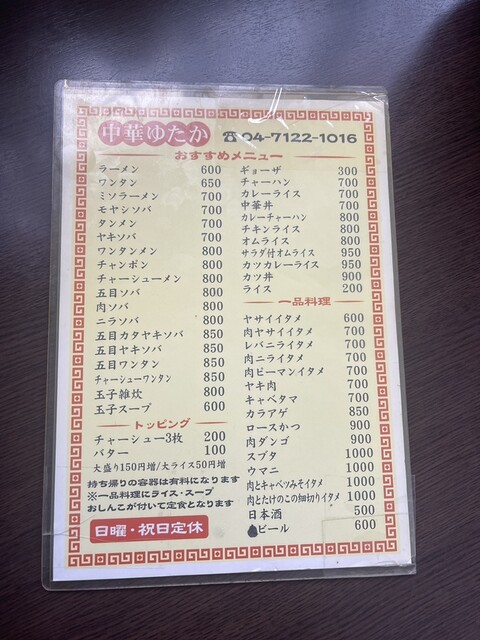 中華ゆたか ☎04-7122-1016
おすすめメニュー
ラーメン 600
ワンタン 650
ミソラーメン 700
モヤシソバ 700
タンメン 700
ヤキソバ 700
ワンタンメン 800
チャンポン 800
チャーシューメン 800
五目ソバ 800
肉ソバ 800
ニラソバ 800
五目カタヤキソバ 850
五目ヤキソバ 850
五目ワンタン 850
チャーシューワンタン 850
玉子雑炊 800
玉子スープ 600
トッピング
チャーシュー3枚 200
バター 100
大盛り150円増/大ライス50円増
持ち帰りの容器は有料になります
※一品料理にライス・スープ
おしんこが付いて定食となります
日曜・祝日定休
ギョーザ 300
チャーハン 700
カレーライス 700
中華丼 700
カレーチャーハン 800
チキンライス 800
オムライス 800
サラダ付オムライス 950
カツカレーライス 950
カツ丼 900
ライス 200
一品料理
ヤサイイタメ 600
肉ヤサイイタメ 700
レバニライタメ 700
肉ニライタメ 700
肉ピーマンイタメ 700
ヤキ肉 700
キャベタマ 700
カラアゲ 850
ロースかつ 900
肉ダンゴ 900
スブタ 1000
ウマニ 1000
肉とキャベツみそイタメ 1000
肉とたけのこの細切りイタメ 1000
日本酒 500
ビール 600